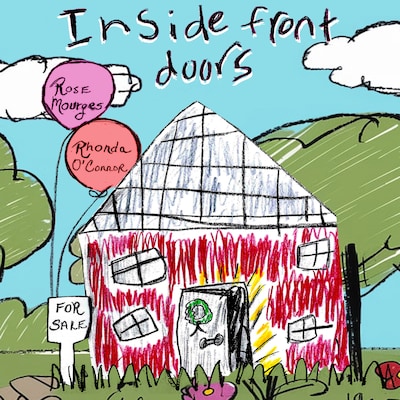 Inside front
doors
Rose
Mourges
Rhonda
O'Connor
FOR
SALE